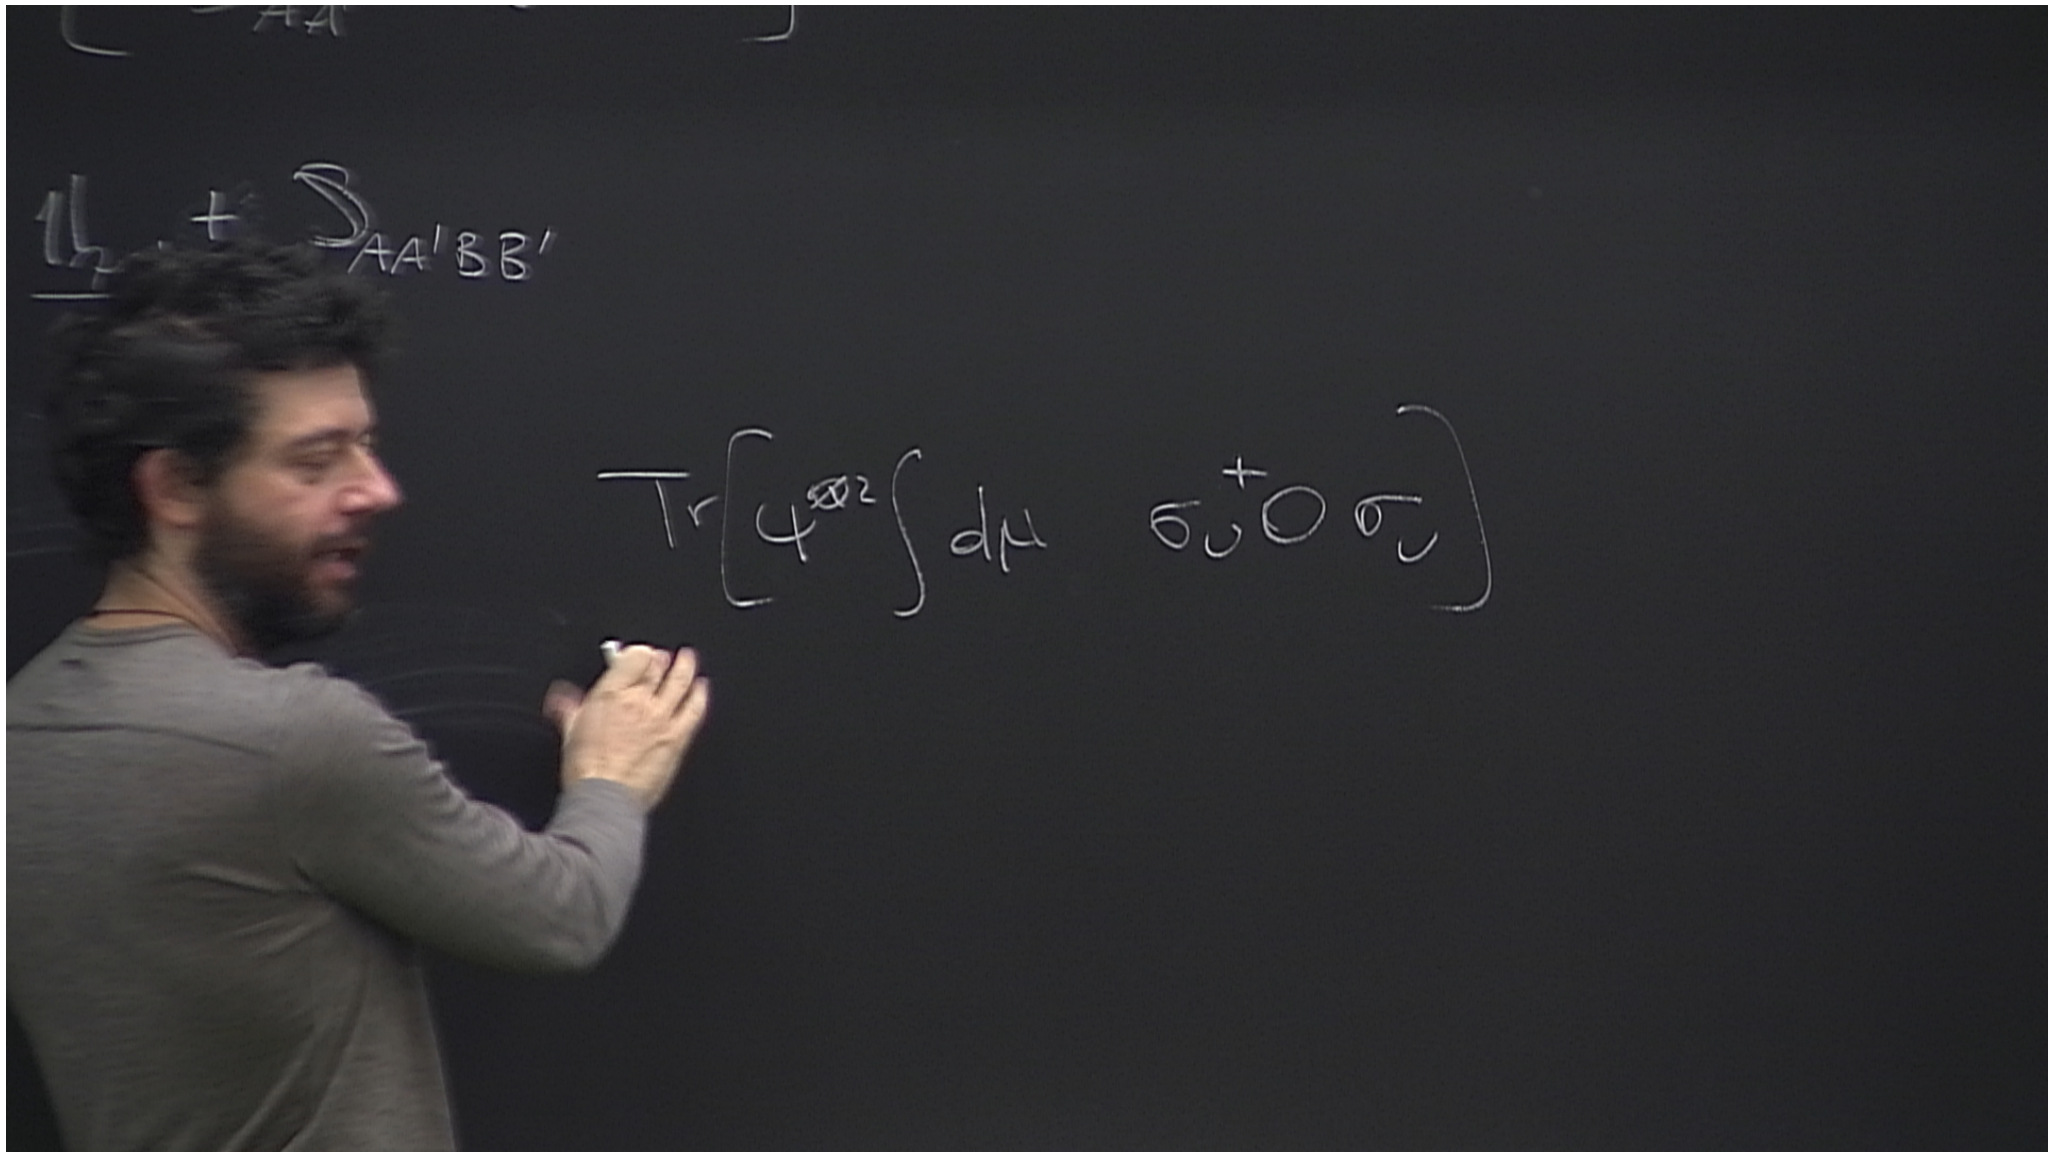 [ S_AA' ]
𝟙 + S_AA'BB'
Tr[ψ^⊗2 ∫ dμ σ_U^+ O σ_U]